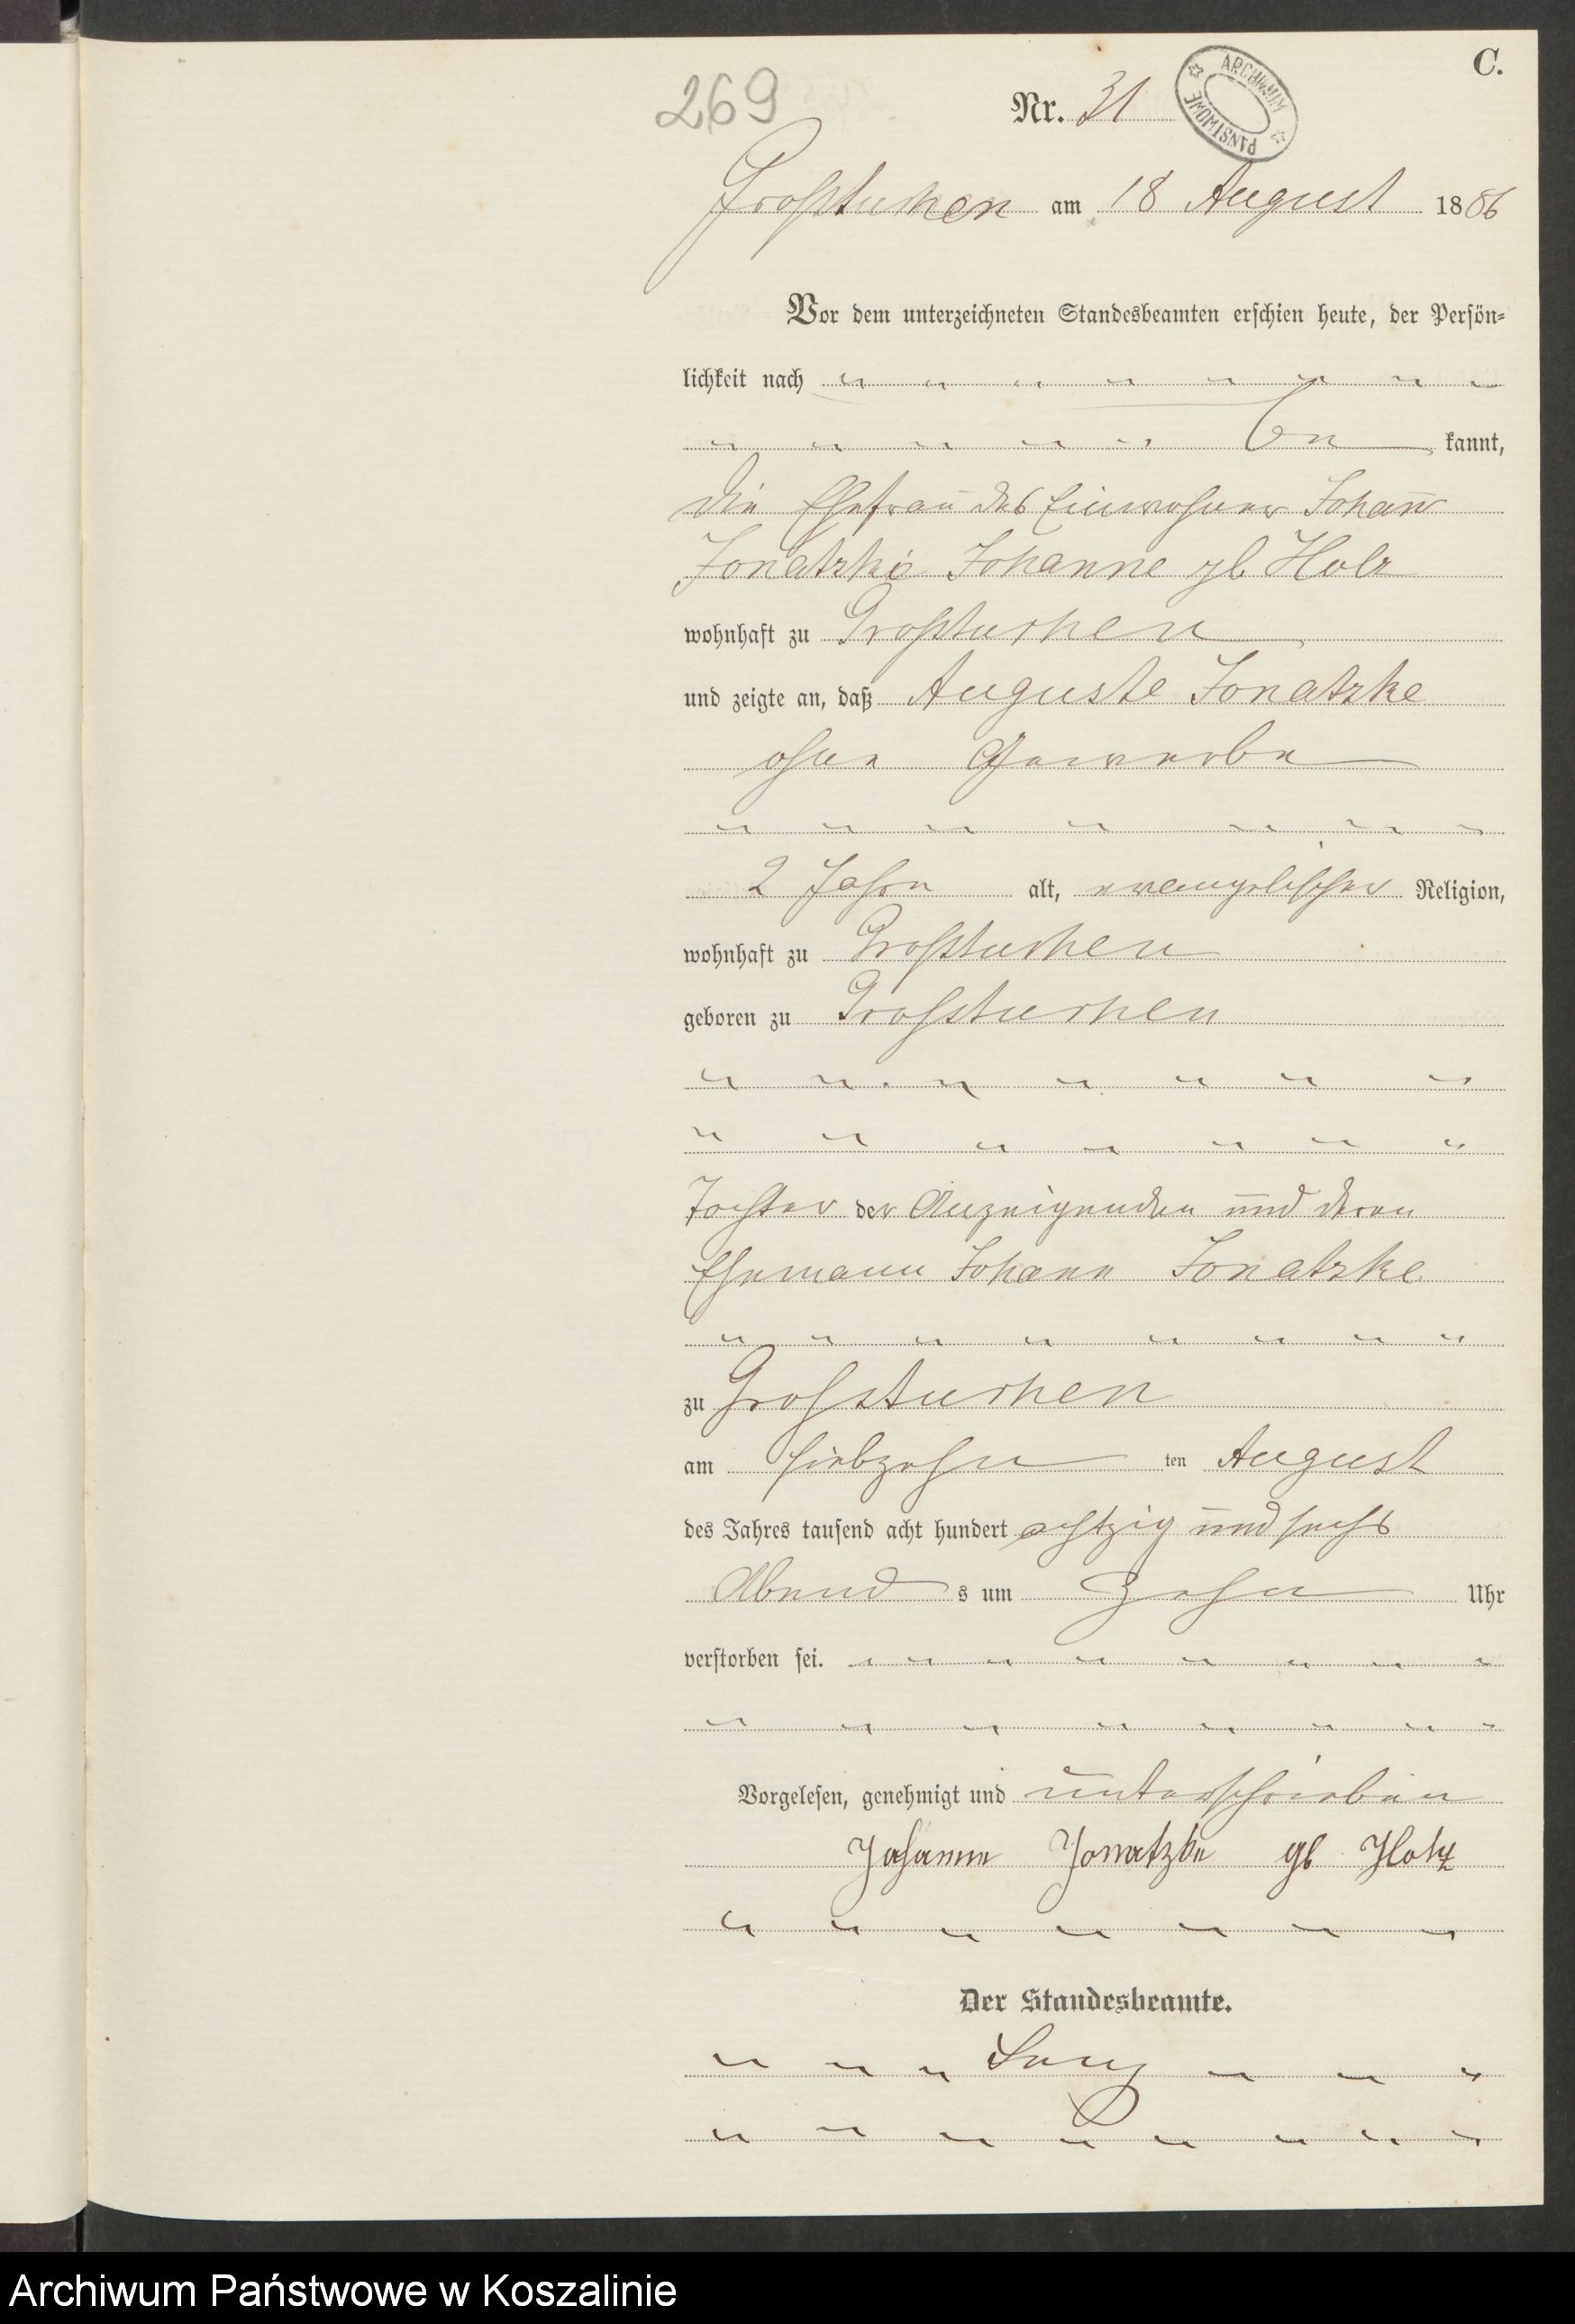 C.
269
Nr. 31
ARCHIWUM PAŃSTWOWE
Großtuchen am 18 August 1886
Vor dem unterzeichneten Standesbeamten erschien heute, der Persön-
lichkeit nach " " " " " " " "
" " " " " be kannt,
die Ehefrau des Einwohner Johann
Jonatzke Johanne gb. Holz
wohnhaft zu Großtuchen
und zeigte an, daß Auguste Jonatzke
ohne Gewerbe
" " " " " " "
2 Jahre alt, evangelischer Religion,
wohnhaft zu Großtuchen
geboren zu Großtuchen
" " " " " " "
" " " " " " "
Tochter der Anzeigenden und deren
Ehemann Johann Jonatzke
" " " " " " " "
zu Großtuchen
am siebzehn ten August
des Jahres tausend acht hundert achtzig und sechs
Abend s um zehn Uhr
verstorben sei. " " " " " " " "
" " " " " " " "
Vorgelesen, genehmigt und unterschrieben
Johanne Jonatzke gb Holtz
" " " " " " "
Der Standesbeamte.
" " " " " "
" " " " " " " "
Archiwum Państwowe w Koszalinie